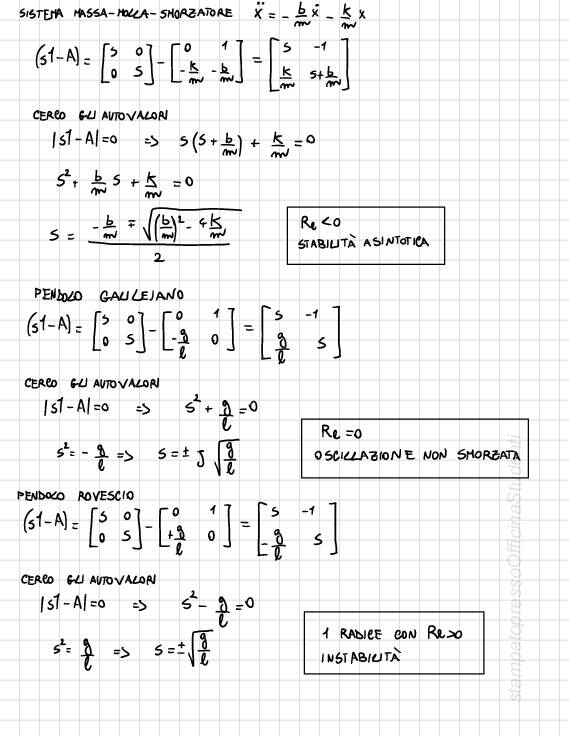 SISTEMA MASSA-MOLLA-SMORZATORE ẍ = - b/m ẋ - k/m x
(s1-A) = [s 0; 0 s] - [0 1; -k/m -b/m] = [s -1; k/m s+b/m]
CERCO GLI AUTOVALORI
|s1-A|=0 => s(s+b/m) + k/m = 0
s² + b/m s + k/m = 0
s = (-b/m ∓ √((b/m)² - 4k/m)) / 2
Re<0
STABILITÀ ASINTOTICA
PENDOLO GALILEIANO
(s1-A) = [s 0; 0 s] - [0 1; -g/l 0] = [s -1; g/l s]
CERCO GLI AUTOVALORI
|s1-A|=0 => s² + g/l = 0
s² = -g/l => s = ± j √(g/l)
Re=0
OSCILLAZIONE NON SMORZATA
PENDOLO ROVESCIO
(s1-A) = [s 0; 0 s] - [0 1; +g/l 0] = [s -1; -g/l s]
CERCO GLI AUTOVALORI
|s1-A|=0 => s² - g/l = 0
s² = g/l => s = ± √(g/l)
1 RADICE CON Re>0
INSTABILITÀ
stampatopressoOfficinaStudenti